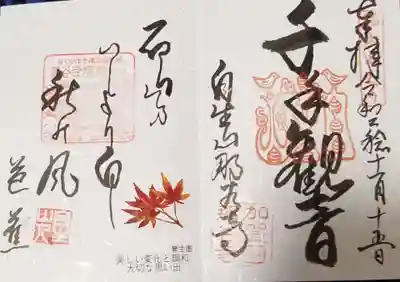 奉拝令和二稔十一月十五日
千手觀音
自生山那谷寺
石山乃
いしより白し
秋の風
芭蕉
美しい変化と調和
大切な思い出